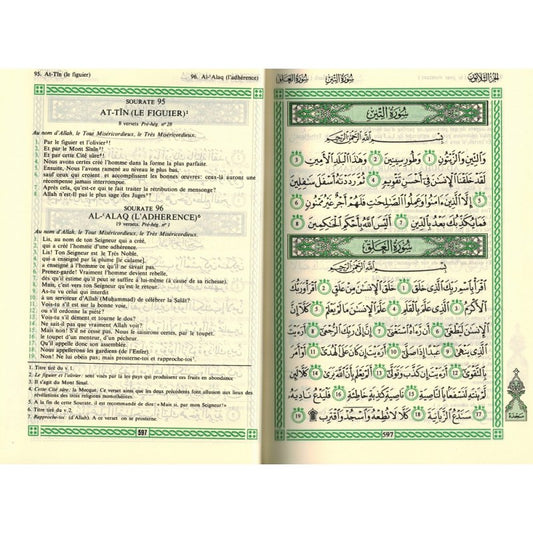 95. At-Tîn (le figuier)
96. Al-ʿAlaq (l'adhérence)
SOURATE 95
AT-TÎN (LE FIGUIER)¹
8 versets, Pré-hég. n° 28
Au nom d'Allah, le Tout Miséricordieux, le Très Miséricordieux.
1. Par le figuier et l'olivier²!
2. Et par le Mont Sînîn³!
3. Et par cette Cité sûre⁴!
4. Nous avons certes créé l'homme dans la forme la plus parfaite.
5. Ensuite, Nous l'avons ramené au niveau le plus bas,
6. sauf ceux qui croient et accomplissent les bonnes œuvres: ceux-là auront une
récompense jamais interrompue.
7. Après cela, qu'est-ce qui te fait traiter la rétribution de mensonge?
8. Allah n'est-Il pas le plus sage des Juges⁵?
SOURATE 96
AL-ʿALAQ (L'ADHERENCE)⁶
19 versets, Pré-hég. n° 1
Au nom d'Allah, le Tout Miséricordieux, le Très Miséricordieux.
1. Lis, au nom de ton Seigneur qui a créé,
2. qui a créé l'homme d'une adhérence.
3. Lis! Ton Seigneur est le Très Noble,
4. qui a enseigné par la plume [le calame],
5. a enseigné à l'homme ce qu'il ne savait pas.
6. Prenez-garde! Vraiment l'homme devient rebelle,
7. dès qu'il estime qu'il peut se suffire à lui-même (à cause de sa richesse).
8. Mais, c'est vers ton Seigneur qu'est le retour.
9. As-tu vu celui qui interdit
10. à un serviteur d'Allah (Muhammad) de célébrer la Salât?
11. Vois-tu s'il est sur la bonne voie,
12. ou s'il ordonne la piété?
13. Vois-tu s'il dément et tourne le dos?
14. Ne sait-il pas que vraiment Allah voit?
15. Mais non! S'il ne cesse pas, Nous le saisirons certes, par le toupet,
16. le toupet d'un menteur, d'un pécheur.
17. Qu'il appelle donc son assemblée.
18. Nous appellerons les gardiens (de l'Enfer).
19. Non! Ne lui obéis pas; mais prosterne-toi et rapproche-toi⁷.
1. Titre tiré du v. 1.
2. Le figuier et l'olivier: sont visés par là les pays qui produisent ces fruits en abondance
3. Il s'agit du Mont Sinaï.
4. Cette Cité sûre: la Mecque. Ce verset ainsi que les deux précédents font allusion aux lieux des
révélations des trois religions monothéistes.
5. A la fin de cette Sourate, il est recommandé de dire: «Mais si, par mon Seigneur!»
6. Titre tiré du v. 2.
7. Rapproche-toi: (d'Allah). A ce verset on se prosterne.
597
سُورَةُ العَلَق
سُورَةُ التِّين
الجزء الثلاثون
سُورَةُ التِّينِ
بِسْمِ اللَّهِ الرَّحْمَٰنِ الرَّحِيمِ
وَالتِّينِ وَالزَّيْتُونِ ١ وَطُورِ سِينِينَ ٢ وَهَٰذَا الْبَلَدِ الْأَمِينِ ٣
لَقَدْ خَلَقْنَا الْإِنسَانَ فِي أَحْسَنِ تَقْوِيمٍ ٤ ثُمَّ رَدَدْنَاهُ أَسْفَلَ سَافِلِينَ
٥ إِلَّا الَّذِينَ آمَنُوا وَعَمِلُوا الصَّالِحَاتِ فَلَهُمْ أَجْرٌ غَيْرُ مَمْنُونٍ ٦
فَمَا يُكَذِّبُكَ بَعْدُ بِالدِّينِ ٧ أَلَيْسَ اللَّهُ بِأَحْكَمِ الْحَاكِمِينَ ٨
سُورَةُ العَلَقِ
بِسْمِ اللَّهِ الرَّحْمَٰنِ الرَّحِيمِ
اقْرَأْ بِاسْمِ رَبِّكَ الَّذِي خَلَقَ ١ خَلَقَ الْإِنسَانَ مِنْ عَلَقٍ ٢ اقْرَأْ وَرَبُّكَ
الْأَكْرَمُ ٣ الَّذِي عَلَّمَ بِالْقَلَمِ ٤ عَلَّمَ الْإِنسَانَ مَا لَمْ يَعْلَمْ ٥
كَلَّا إِنَّ الْإِنسَانَ لَيَطْغَىٰ ٦ أَن رَّآهُ اسْتَغْنَىٰ ٧ إِنَّ إِلَىٰ رَبِّكَ الرُّجْعَىٰ ٨ أَرَأَيْتَ
الَّذِي يَنْهَىٰ ٩ عَبْدًا إِذَا صَلَّىٰ ١٠ أَرَأَيْتَ إِن كَانَ عَلَى الْهُدَىٰ ١١ أَوْ أَمَرَ
بِالتَّقْوَىٰ ١٢ أَرَأَيْتَ إِن كَذَّبَ وَتَوَلَّىٰ ١٣ أَلَمْ يَعْلَم بِأَنَّ اللَّهَ يَرَىٰ ١٤ كَلَّا لَئِن
لَّمْ يَنتَهِ لَنَسْفَعًا بِالنَّاصِيَةِ ١٥ نَاصِيَةٍ كَاذِبَةٍ خَاطِئَةٍ ١٦ فَلْيَدْعُ نَادِيَهُ
١٧ سَنَدْعُ الزَّبَانِيَةَ ١٨ كَلَّا لَا تُطِعْهُ وَاسْجُدْ وَاقْتَرِب ۩ ١٩
سجدة
597